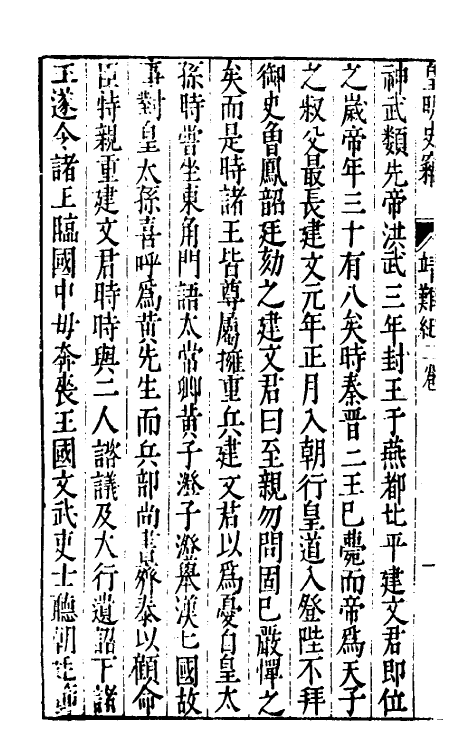 皇明史竊 靖難紀一卷 一
神武類先帝洪武三年封王于燕都北平建文君即位
之歲帝年三十有八矣時秦晉二王已薨而帝爲天子
之叔父最長建文元年正月入朝行皇道入登陛不拜
御史魯鳳韶廷劾之建文君曰至親勿問固已嚴憚之
矣而是時諸王皆尊屬擁重兵建文君以爲憂自皇太
孫時嘗坐東角門語太常卿黃子澄子澄舉漢七國故
事對皇太孫喜呼爲黃先生而兵部尚書齊泰以顧命
臣特親重建文君時時與二人諮議及大行遺詔下諸
王遂令諸王臨國中毋奔喪王國文武吏士聽朝廷節